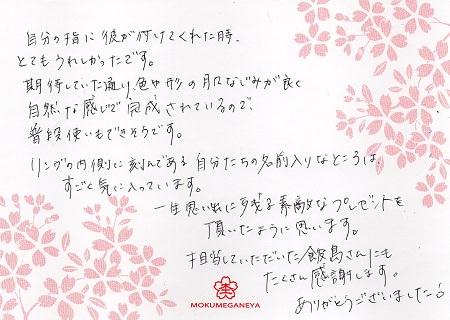 自分の指に彼が付けてくれた時、
とてもうれしかったです。
期待していた通り、色や形の肌なじみが良く
自然な感じで完成されているので、
普段使いもできそうです。
リングの内側に刻んである自分たちの名前入りなところは、
すごく気に入っています。
一生思い出に残る素敵なプレゼントを
頂いたように思います。
担当していただいた飯島さんにも
たくさん感謝します。
ありがとうございました
MOKUMEGANEYA